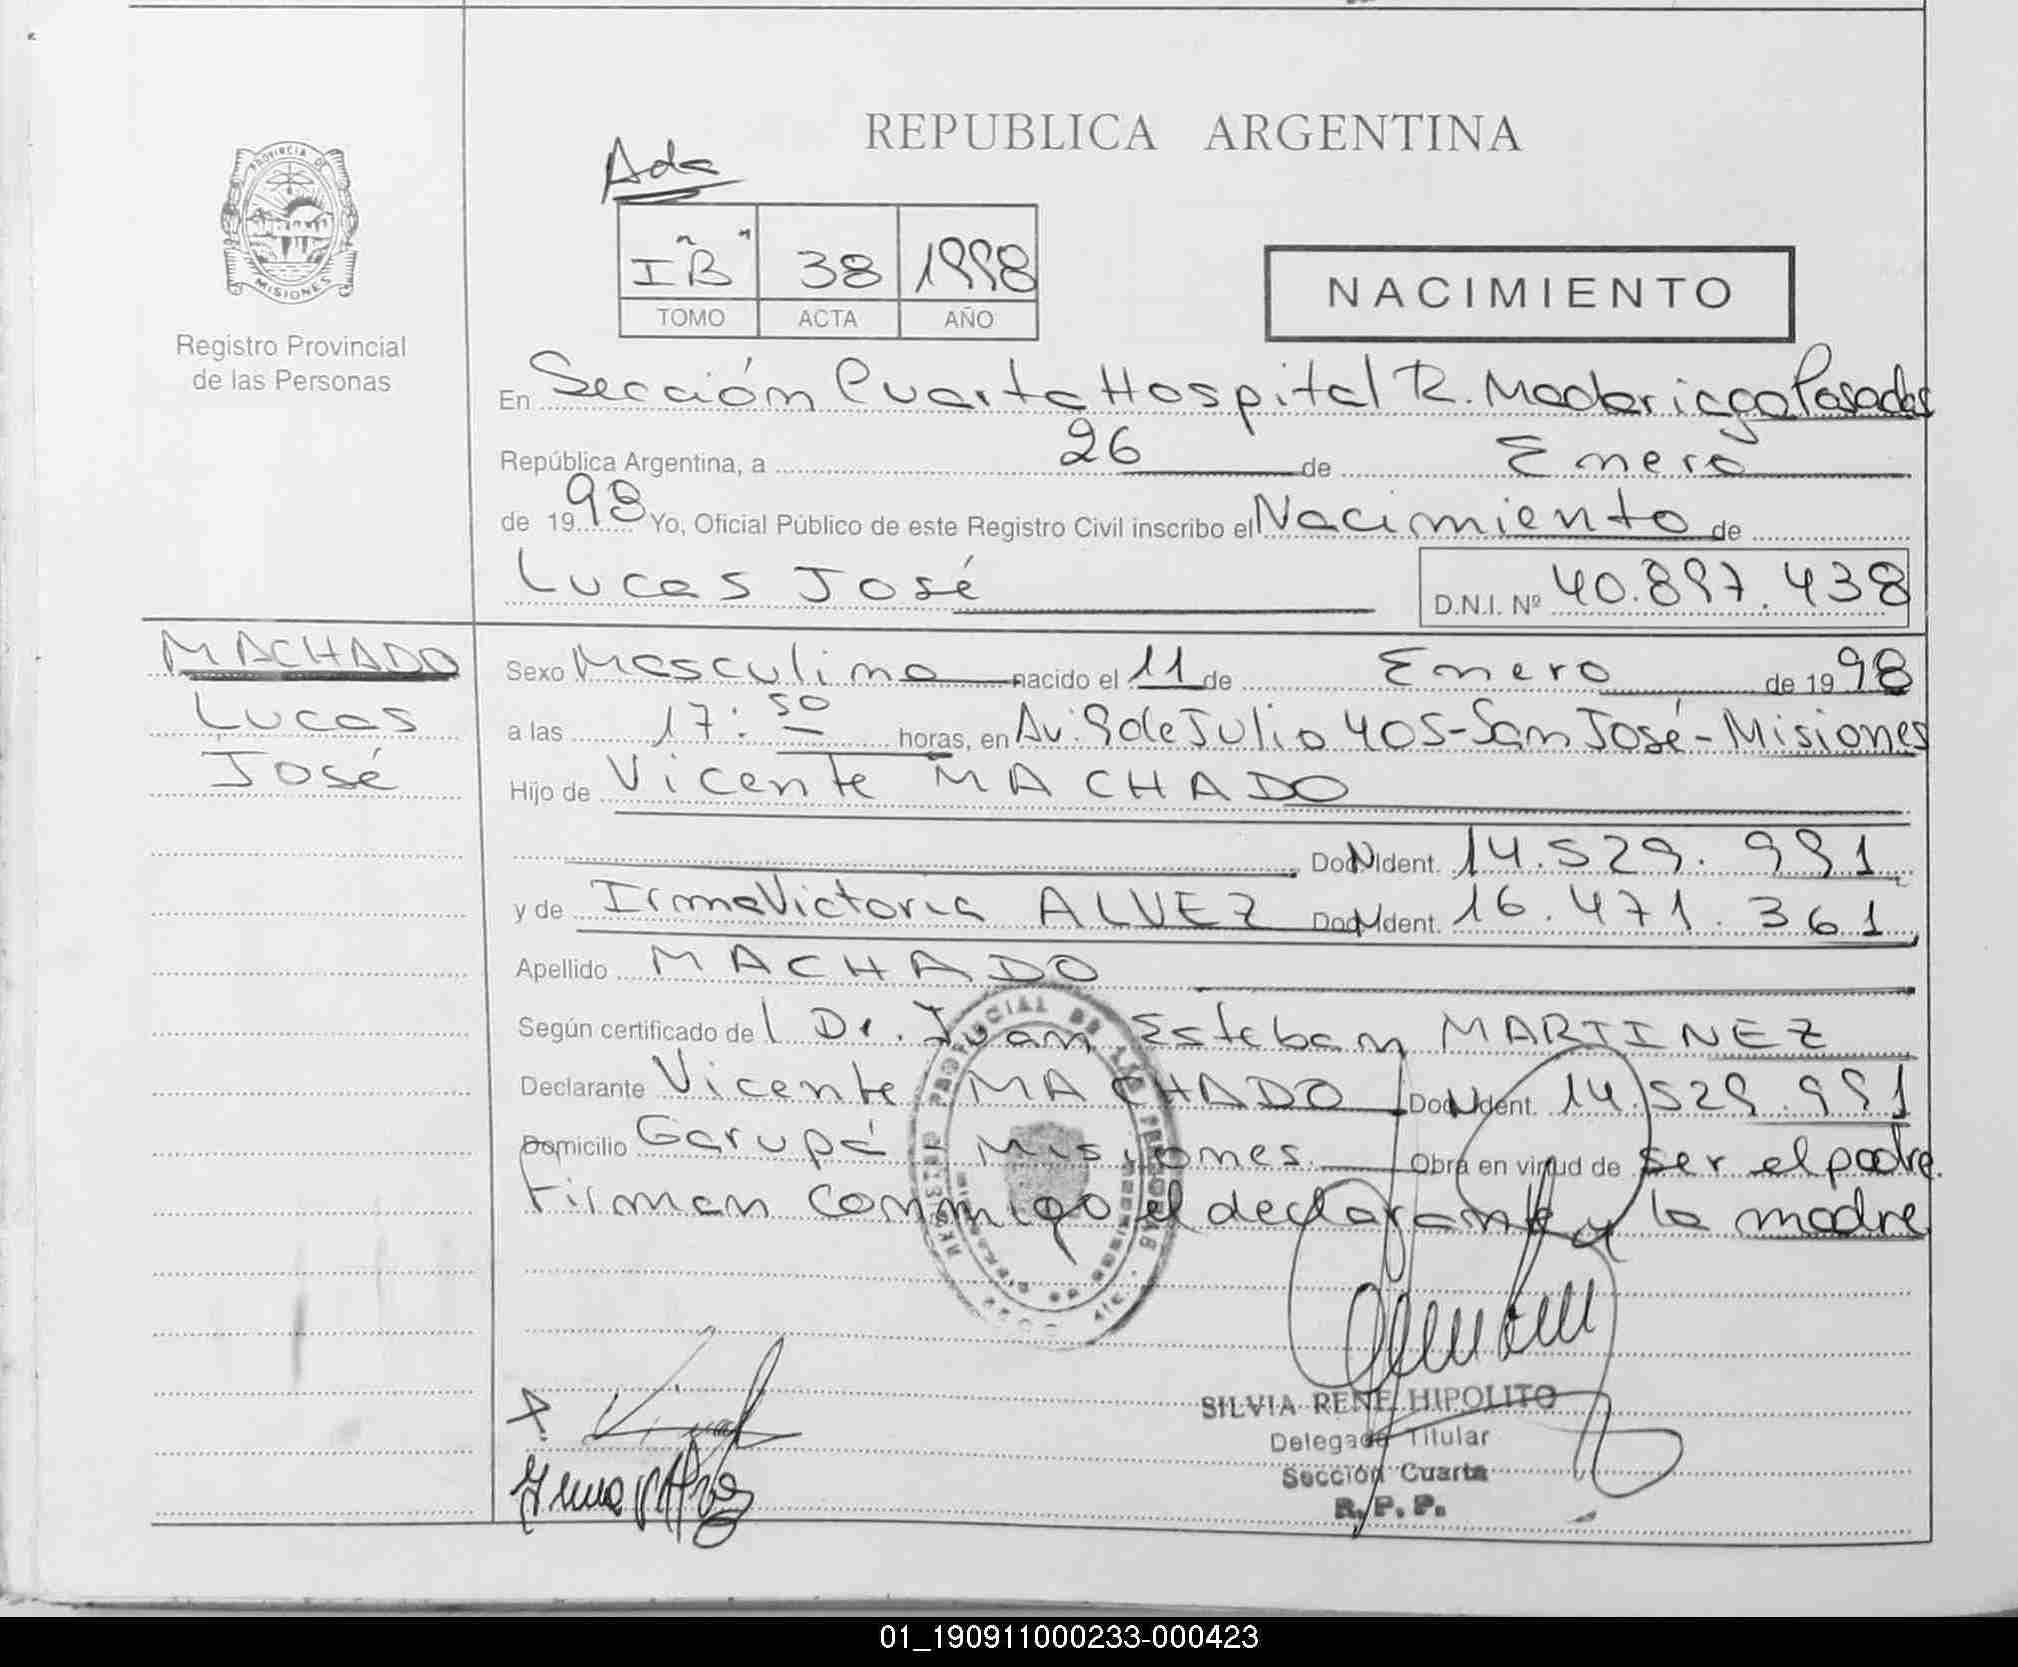 REPUBLICA ARGENTINA
PROVINCIA DE
MISIONES
Registro Provincial
de las Personas
Ada
I "B" 38 1998
TOMO ACTA AÑO
NACIMIENTO
En Sección Cuarta Hospital R. Madariaga Posadas
República Argentina, a 26 de Enero
de 1998 Yo, Oficial Público de este Registro Civil inscribo el Nacimiento de
Lucas José D.N.I. Nº 40.897.438
MACHADO
Lucas
José
Sexo Masculino nacido el 11 de Enero de 1998
a las 17:50 horas, en Av. 9 de Julio 405-San José-Misiones
Hijo de Vicente MACHADO
Doc. Ident. 14.529.991
y de Irma Victoria ALVEZ Doc. Ident. 16.471.361
Apellido MACHADO
Según certificado del Dr. Juan Esteban MARTINEZ
Declarante Vicente MACHADO Doc. Ident. 14.529.991
Domicilio Garupá Misiones Obra en virtud de ser el padre.
Firman conmigo el declarante y la madre
REGISTRO PROVINCIAL DE LAS PERSONAS
SILVIA RENE HIPOLITO
Delegada Titular
Sección Cuarta
R. P. P.
01_190911000233-000423